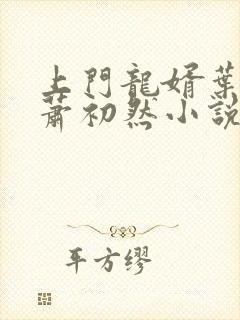 上門龍婿葉
蕭初然小說
平方繆